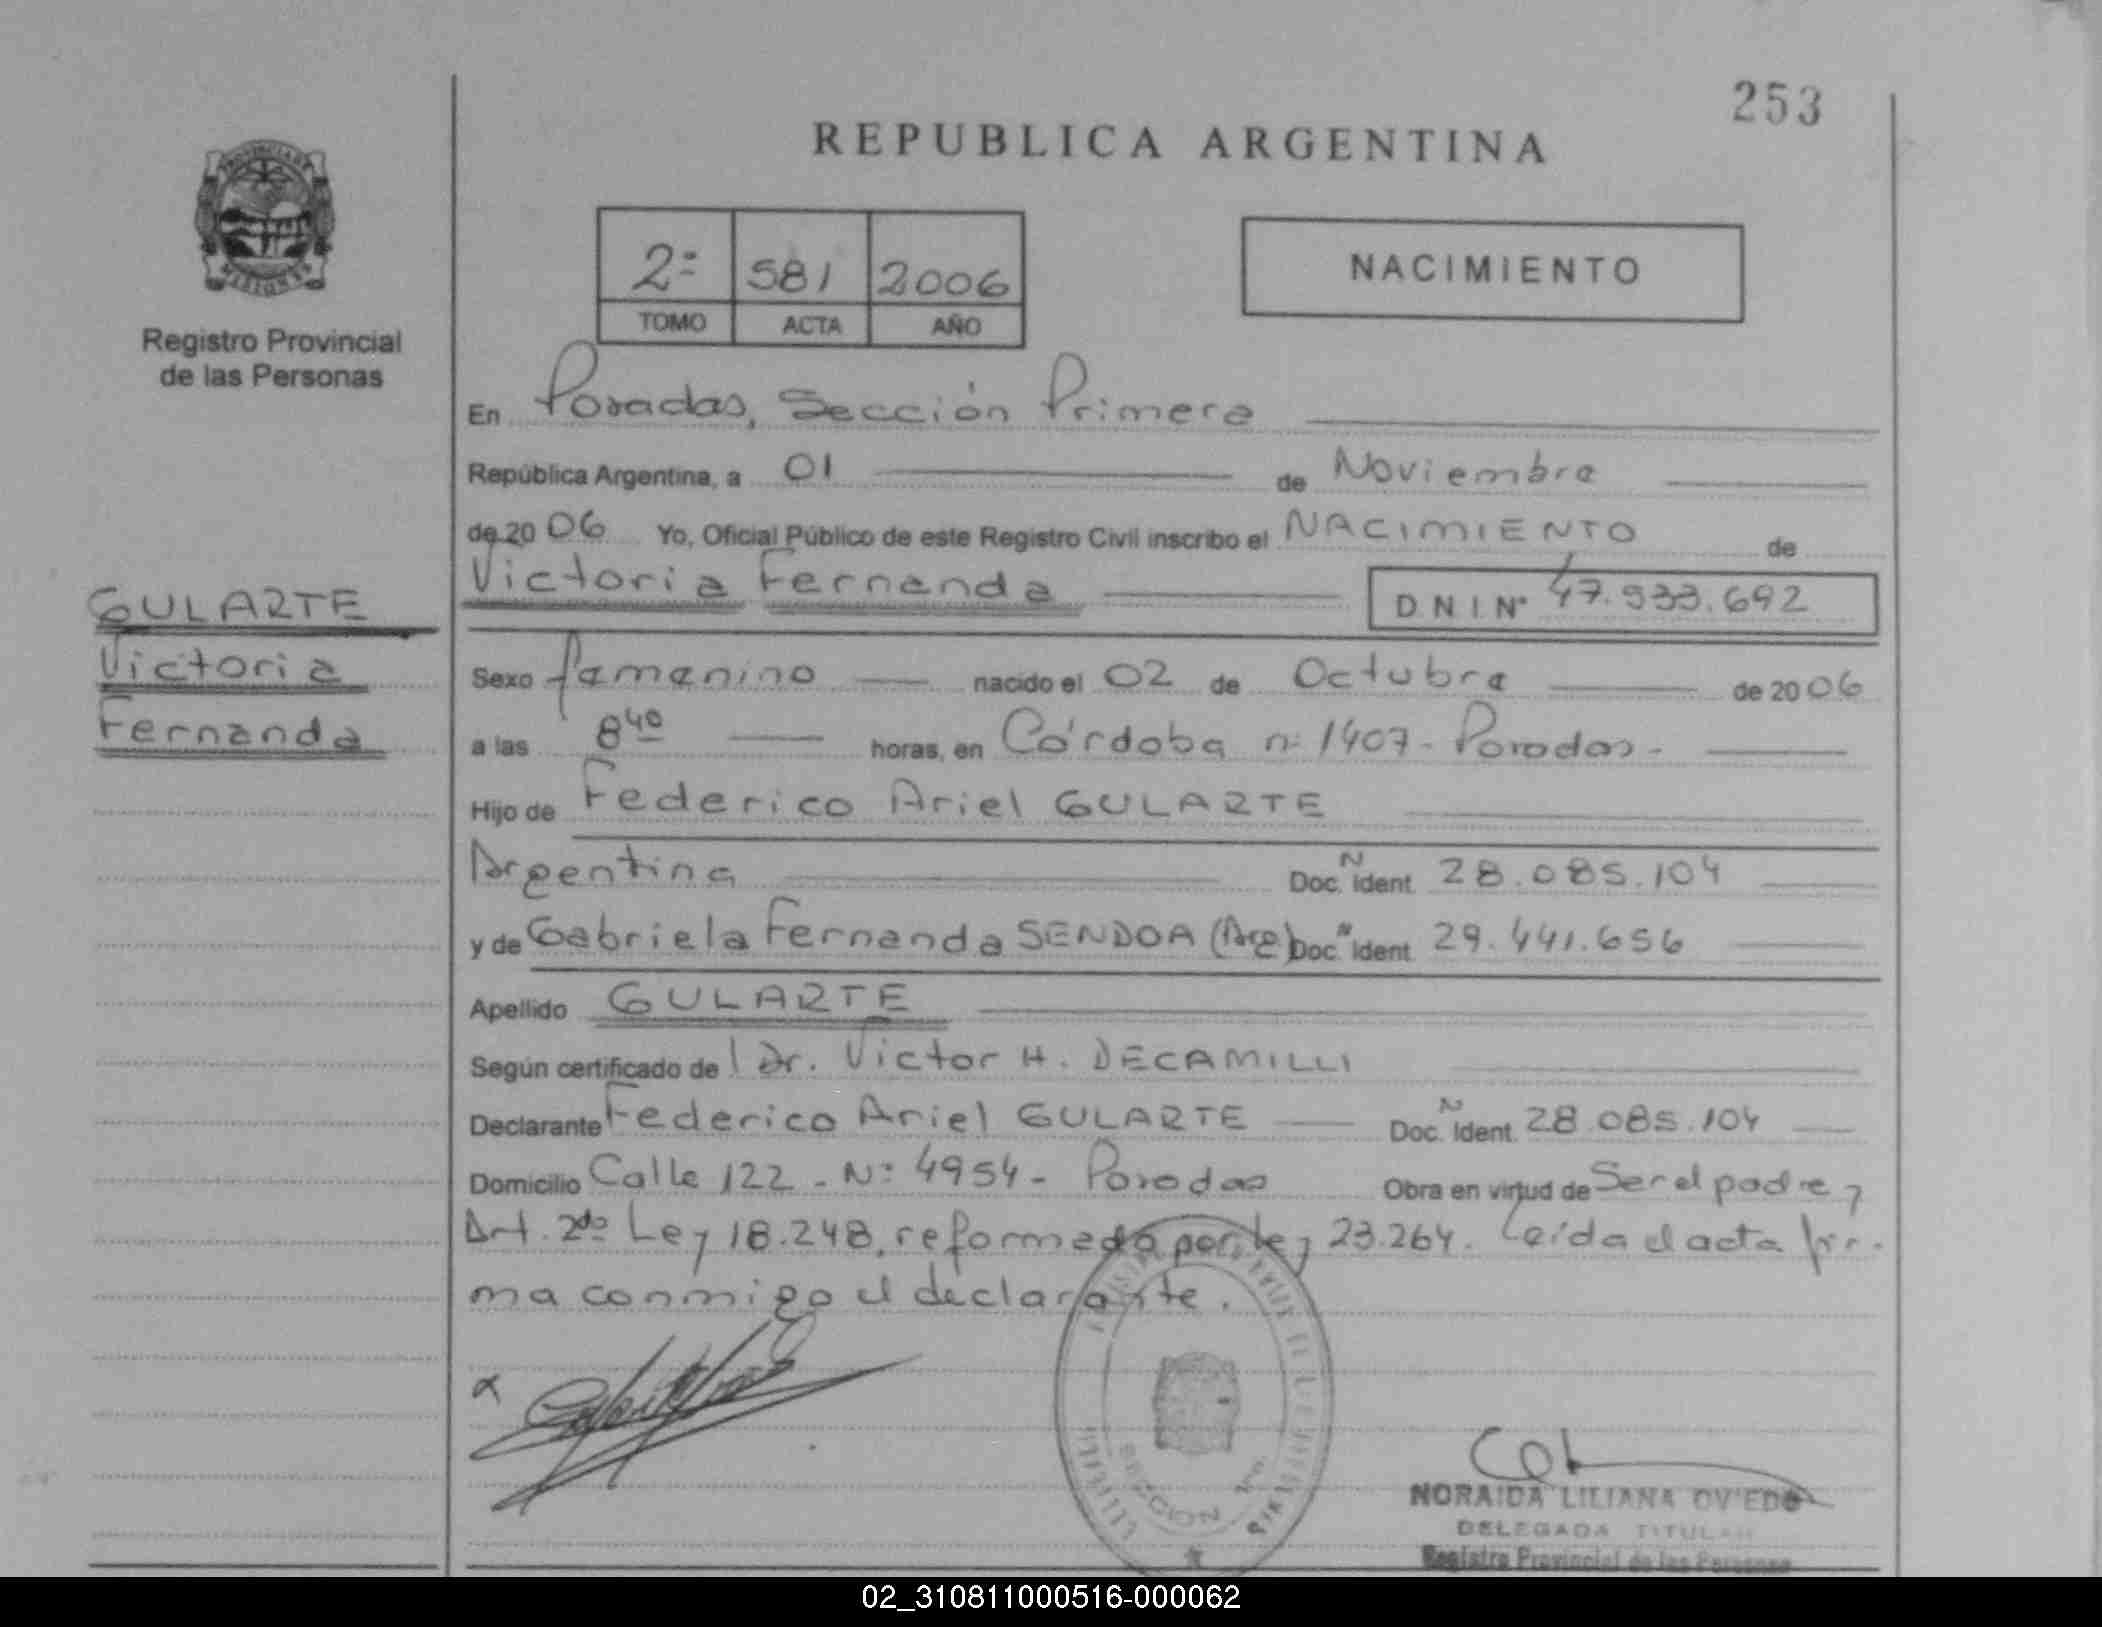 253
REPUBLICA ARGENTINA
PROVINCIA DE
MISIONES
Registro Provincial
de las Personas
2º 581 2006
TOMO ACTA AÑO
NACIMIENTO
En Posadas, Sección Primera
República Argentina, a 01 de Noviembre
de 20 06 Yo, Oficial Público de este Registro Civil inscribo el NACIMIENTO de
Victoria Fernanda D.N.I. Nº 47.933.692
GULARTE
Victoria
Fernanda
Sexo femenino nacido el 02 de Octubre de 20 06
a las 8 40 horas, en Córdoba nº 1407 - Posadas -
Hijo de Federico Ariel GULARTE
Argentina Doc. N Ident. 28.085.104
y de Gabriela Fernanda SENDOA (Arg) Doc. N Ident. 29.441.656
Apellido GULARTE
Según certificado de l Dr. Victor H. DECAMILLI
Declarante Federico Ariel GULARTE Doc. N Ident. 28.085.104
Domicilio Calle 122 - Nº 4954 - Posadas Obra en virtud de Ser el padre y
Art. 2do Ley 18.248, reformada por ley 23.264. Leída el acta fir-
ma conmigo el declarante.
SECCION 1ra
NORAIDA LILIANA OVIEDO
DELEGADA TITULAR
Registro Provincial de las Personas
02_310811000516-000062